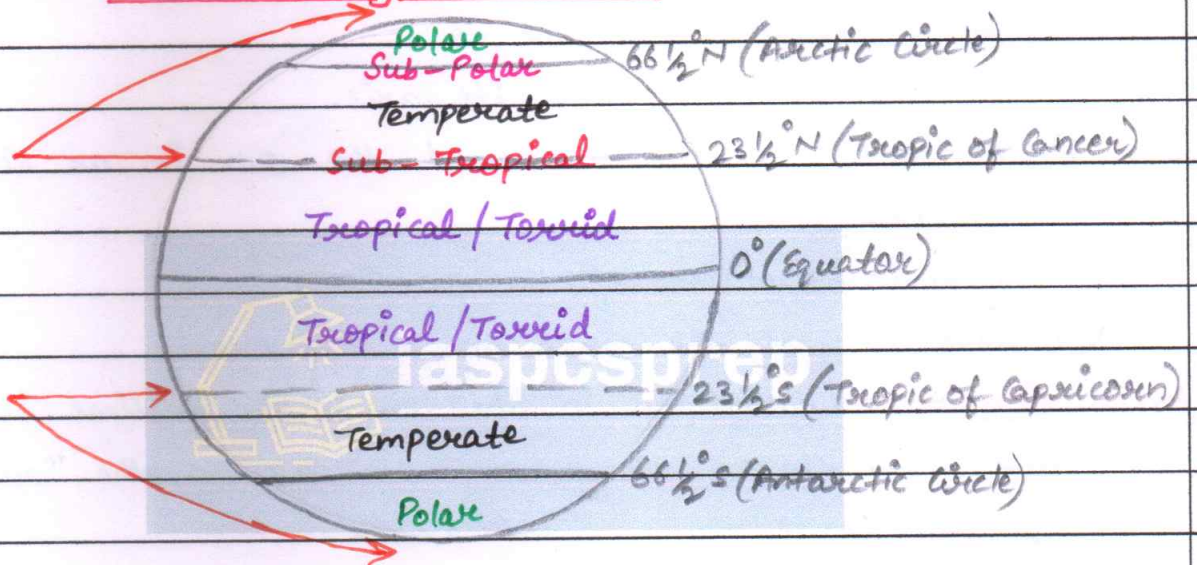 Polar
Sub-Polar
66½°N (Arctic Circle)
Temperate
Sub-Tropical
23½°N (Tropic of Cancer)
Tropical / Torrid
0° (Equator)
Tropical / Torrid
iaspcsprep
23½°S (Tropic of Capricorn)
Temperate
66½°S (Antarctic Circle)
Polar